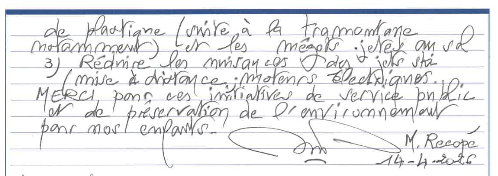 de plastique (suite à la tramontane
notamment) et les mégots jetés au sol
3) Réduire les nuisances des jets ski
(mise à distance, moteurs électriques.
MERCI pour ces initiatives de service public
et de préservation de l'environnement
pour nos enfants.
M. Recopé
14-4-2026